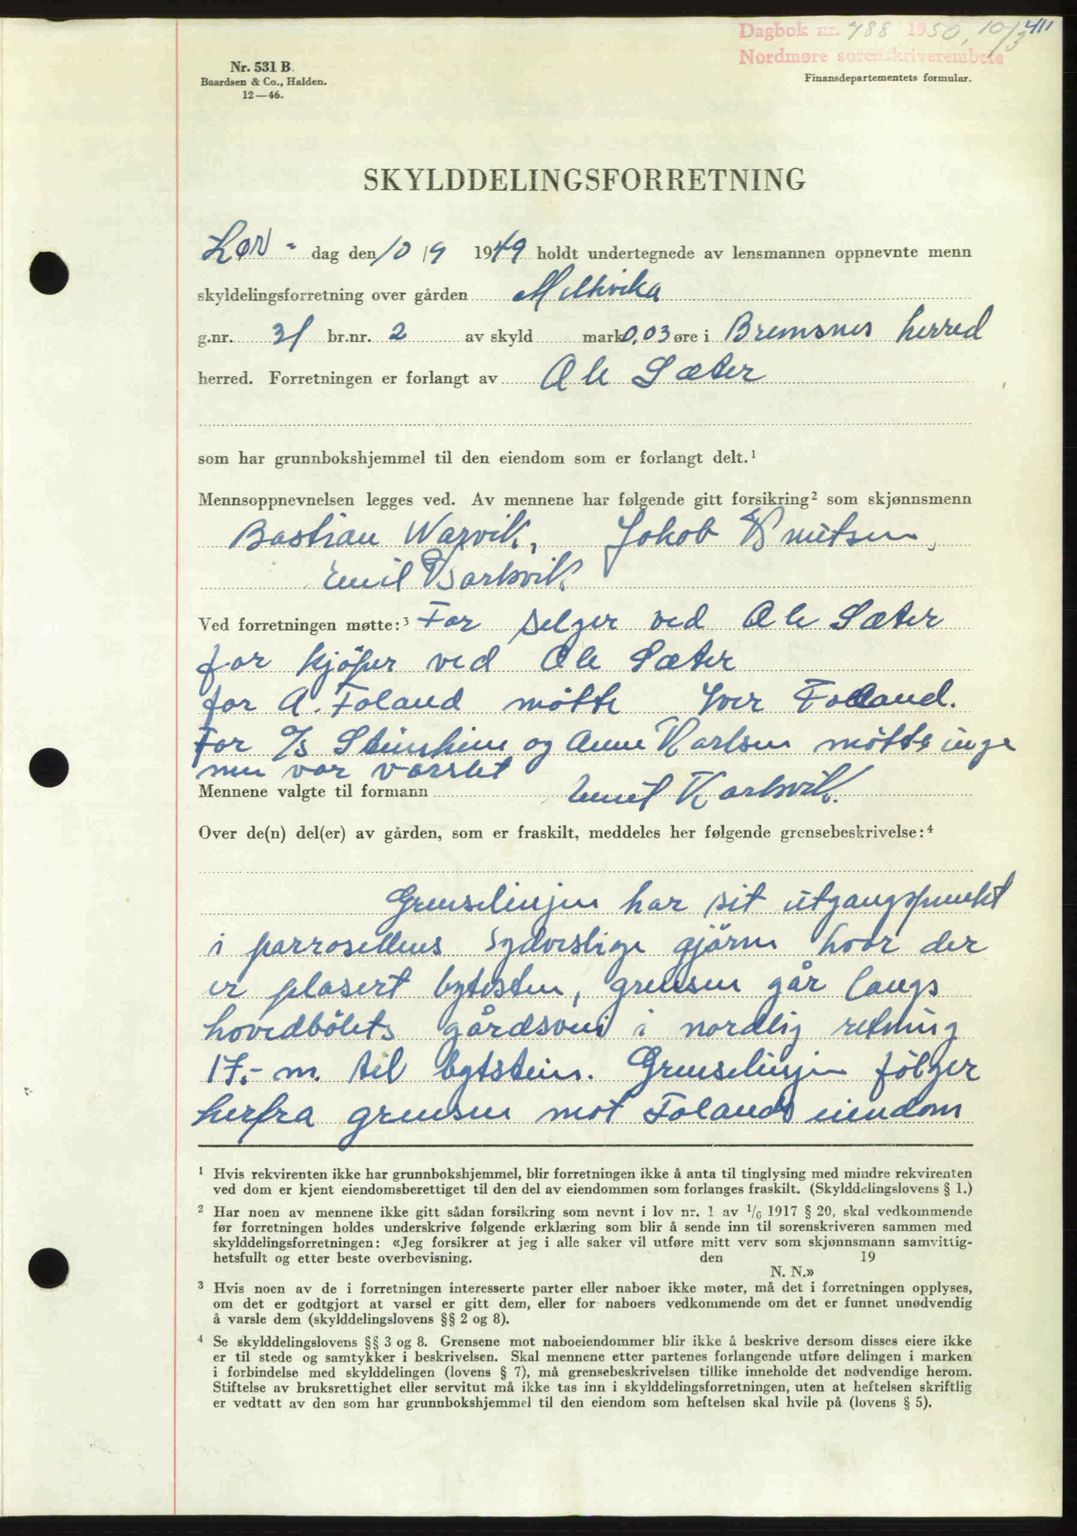 Dagbok nr. 788 1950, 10/3 411
Nordmøre sorenskriverembete
Nr. 531 B.
Baardsen & Co., Halden.
12—46.
Finansdepartementets formular.
SKYLDDELINGSFORRETNING
Lør- dag den 10/9 1949 holdt undertegnede av lensmannen oppnevnte menn
skyldelingsforretning over gården
g.nr. 31 br.nr. 2 av skyld mark 0,03 øre i Bremsnes herred
herred. Forretningen er forlangt av Ole Sæter
som har grunnbokshjemmel til den eiendom som er forlangt delt.¹
Mennsoppnevnelsen legges ved. Av mennene har følgende gitt forsikring² som skjønnsmenn
Bastian Warvik, Jakob Knutsen,
Emil Karlsvik
Ved forretningen møtte:³ For selger ved Ole Sæter
for kjöper ved Ole Sæter
for A. Foland mötte Iver Foland.
For A/S Steinheim og Anne Karlsen mötte inge
men var varslet
Mennene valgte til formann Emil Karlsvik.
Over de(n) del(er) av gården, som er fraskilt, meddeles her følgende grensebeskrivelse:⁴
Grenselinjen har sit utgangspunkt
i parrosellens sydvestlige gjörne hvor der
er plasert bytesten, grensen går langs
hovedbölets gårdsvei i nordlig retning
17.- m. til bytstein. Grenselinjen fölger
herfra grensen mot Folands eiendom
¹ Hvis rekvirenten ikke har grunnbokshjemmel, blir forretningen ikke å anta til tinglysing med mindre rekvirenten
ved dom er kjent eiendomsberettiget til den del av eiendommen som forlanges fraskilt. (Skylddelingslovens § 1.)
² Har noen av mennene ikke gitt sådan forsikring som nevnt i lov nr. 1 av 1/6 1917 § 20, skal vedkommende
før forretningen holdes underskrive følgende erklæring som blir å sende inn til sorenskriveren sammen med
skylddelingsforretningen: «Jeg forsikrer at jeg i alle saker vil utføre mitt verv som skjønnsmann samvittig-
hetsfullt og etter beste overbevisning. den 19
N. N.»
³ Hvis noen av de i forretningen interesserte parter eller naboer ikke møter, må det i forretningen opplyses,
om det er godtgjort at varsel er gitt dem, eller for naboers vedkommende om det er funnet unødvendig
å varsle dem (skylddelingslovens §§ 2 og 8).
⁴ Se skylddelingslovens §§ 3 og 8. Grensene mot naboeiendommer blir ikke å beskrive dersom disses eiere ikke
er til stede og samtykker i beskrivelsen. Skal mennene etter partenes forlangende utføre delingen i marken
i forbindelse med skylddelingen (lovens § 7), må grensebeskrivelsen tillike inneholde det nødvendige herom.
Stiftelse av bruksrettighet eller servitut må ikke tas inn i skylddelingsforretningen, uten at heftelsen skriftlig
er vedtatt av den som har grunnbokshjemmel til den eiendom som heftelsen skal hvile på (lovens § 5).